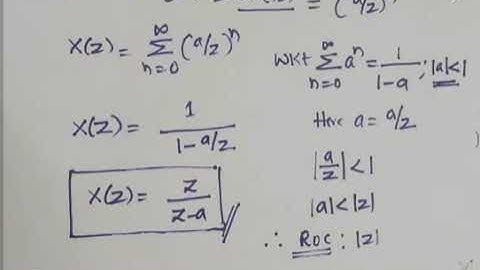 = (a/z)
X(z) = ∑_{n=0}^{∞} (a/z)^n
WKT ∑_{n=0}^{∞} a^n = 1/(1-a) ; |a|<1
X(z) = 1/(1-a/z)
Here a = a/z
|a/z| < 1
X(z) = z/(z-a)
|a| < |z|
∴ ROC : |z|